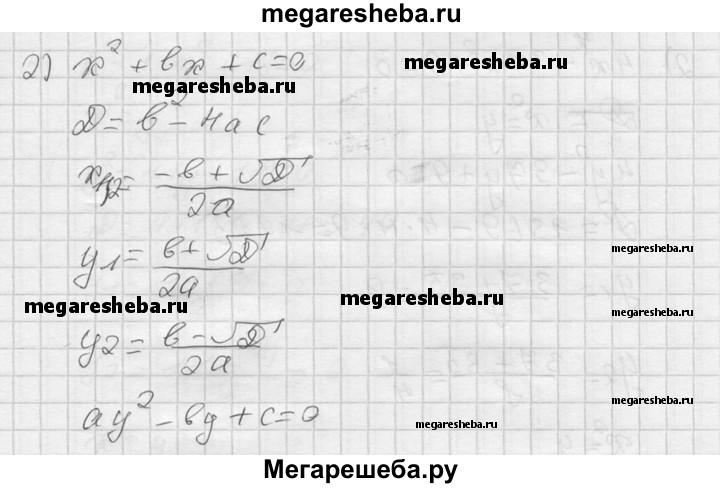 megaresheba.ru
2) x² + вx + c = 0
megaresheba.ru
megaresheba.ru
D = в² - 4ac
x₁,₂ = (-в + √D) / 2a
y₁ = (в + √D) / 2a
megaresheba.ru
megaresheba.ru
megaresheba.ru
megaresheba.ru
y₂ = (в - √D) / 2a
megaresheba.ru
ay² - вy + c = 0
megaresheba.ru
Мегарешеба.ру